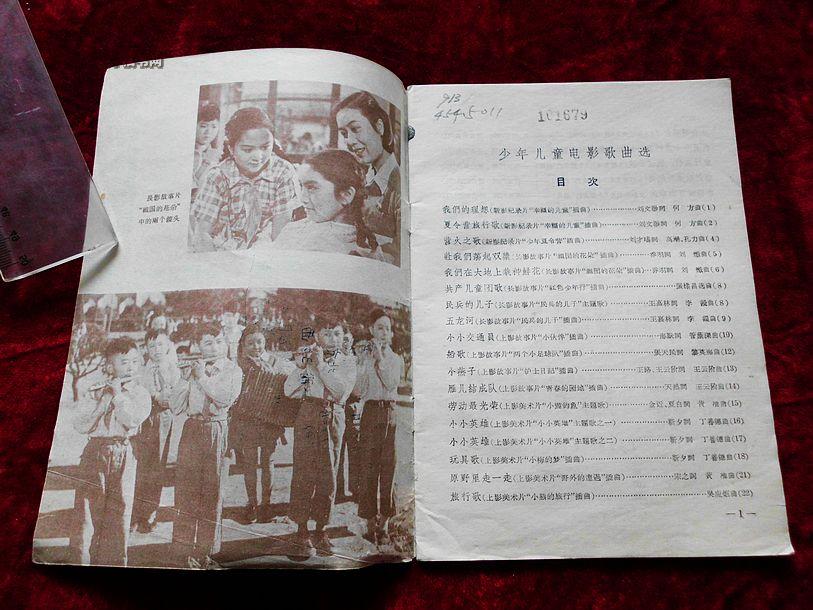 长影故事片
“祖国的花朵”
中的两个镜头
101679
少年儿童电影歌曲选
目 次
我們的理想(新影纪录片“幸福的儿童”插曲)…………刘文聯詞 何 方曲(1)
夏令营旅行歌(新影纪录片“幸福的儿童”插曲)…………刘文聯詞 何 方曲(2)
营火之歌(新影纪录片“少年夏令营”插曲)
讓我們蕩起双槳(长影故事片“祖国的花朵”插曲)…………乔羽詞 刘 熾曲(5)
我們在大地上栽种鮮花(长影故事片“祖国的花朵”插曲)……乔羽詞 刘 熾曲(6)
共产儿童团歌(长影故事片“红色少年行”插曲)
民兵的儿子(长影故事片“民兵的儿子”主題歌)…………王嘉林詞 李 凝曲(8)
五龙河(长影故事片“民兵的儿子”插曲)…………王嘉林詞 李 凝曲(9)
小小交通員(上影故事片“小伙伴”插曲)
船歌(上影故事片“两个小足球队”插曲)…………張天民詞 黎英海曲(12)
小燕子(上影故事片“护士日記”插曲)…………王路、王云阶詞 王云阶曲(13)
雁儿結成队(上影故事片“青春的园地”插曲)…………天然詞 王云阶曲(14)
劳动最光荣(上影美术片“小貓釣魚”主題歌)…………金近、夏白詞 黄 准曲(15)
小小英雄(上影美术片“小小英雄”主題歌之一)…………靳夕詞 丁善德曲(16)
小小英雄(上影美术片“小小英雄”主題歌之二)…………靳夕詞 丁善德曲(17)
玩具歌(上影美术片“小梅的梦”插曲)…………靳夕詞 丁善德曲(18)
原野里走一走(上影美术片“野外的遭遇”插曲)…………宋之詞 黄 准曲(21)
旅行歌(上影美术片“小貓的旅行”插曲)…………吳应炬曲(22)
—1—